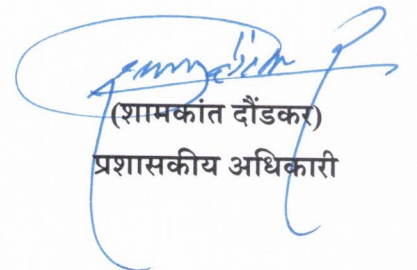 (शामकांत दौंडकर)
प्रशासकीय अधिकारी